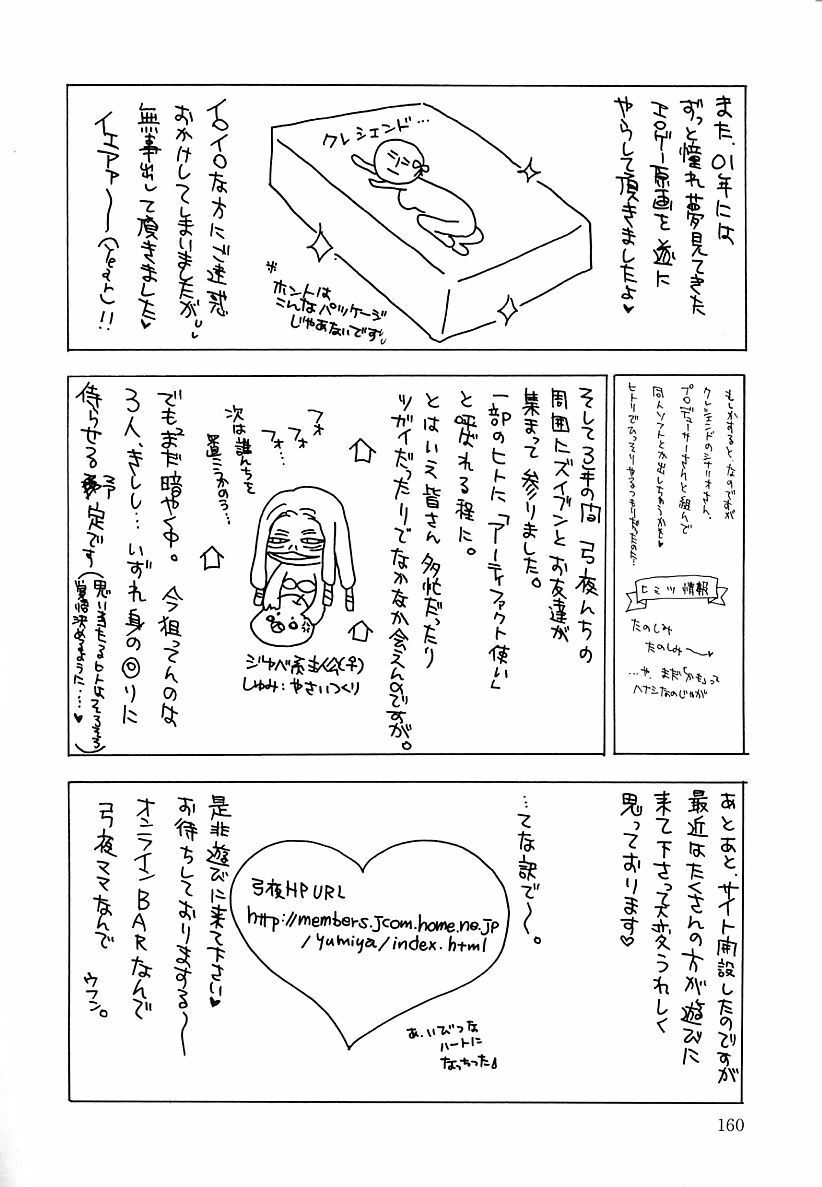 また、01年には
ずっと憧れ夢見てきた
エロゲー原画を遂に
やらして頂きましたよ♥
クレシェンド…
※
ホントは
こんなパッケージ
じゃあないです。
イロイロな方にご迷惑
おかけしてしまいましたが、
無事出して頂きました♥
イエアァ〜〜(Yeah)!!
もしかすると、なのですが
クレシェンドのシナリオさん、
プロデューサーさんと組んで
同人ソフトとか出しちゃうかも♥
ヒトリでひっそりやるつもりだったのた…
ヒミツ情報
たのしみ
たのしみ〜〜♥
…や、まだ「かも」って
ハナシなのじゃが
そして3年の間 弓夜んちの
周囲にズイブンとお友達が
集まって参りました。
一部のヒトに「アーティファクト使い」
と呼ばれる程に。
とはいえ皆さん多忙だったり
ツガイだったりでなかなか会えんのですが。
フォ
フォ
フォ…
次は誰んちを
置こうかのう…
ジャベ系主人公(♀)
しゅみ:やさいつくり
でもまだ暗やく中。 今狙ってんのは
3人、きしし…いずれ身の回りに
侍らせる予定です
(思い当たるヒトはそろそろ
覚悟決めるように…♥)
あとあと、サイト開設したのですが
最近はたくさんの方が遊びに
来て下さって大変うれしく
思っております♥
…てな訳で〜。
弓夜HP URL
http://members.jcom.home.ne.jp
/yumiya/index.html
あ、いびつな
ハートに
なっちった
是非遊びに来て下さい♥
お待ちしておりまする〜〜
オンラインBARなんで
弓夜ママなんで
ウフン。
160